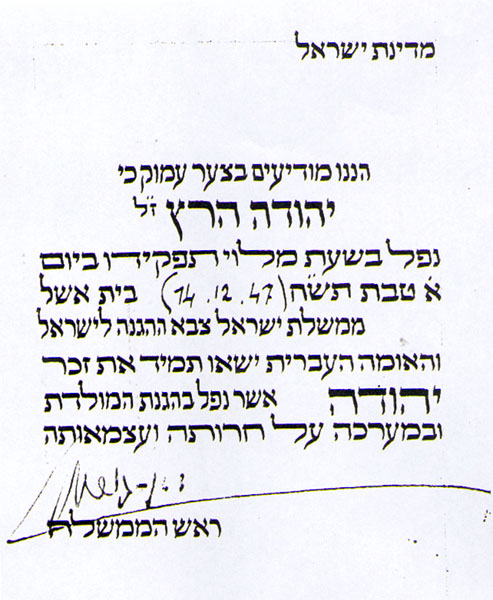 מדינת ישראל
הננו מודיעים בצער עמוק כי
יהודה הרץ ז"ל
נפל בשעת מלוי תפקידו ביום
א' טבת תש"ח (14.12.47) בית אשל
ממשלת ישראל צבא ההגנה לישראל
והאומה העברית ישאו תמיד את זכר
יהודה אשר נפל בהגנת המולדת
ובמערכה על חרותה ועצמאותה
ד. בן-גוריון
ראש הממשלה